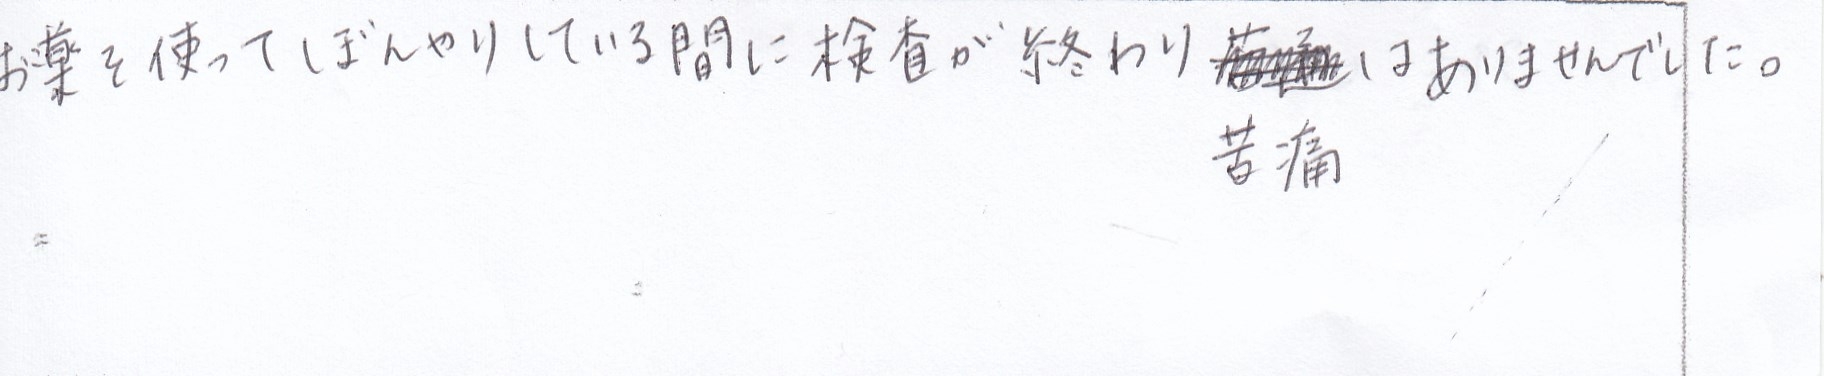 お薬を使ってぼんやりしている間に検査が終わりはありませんでした。
苦痛